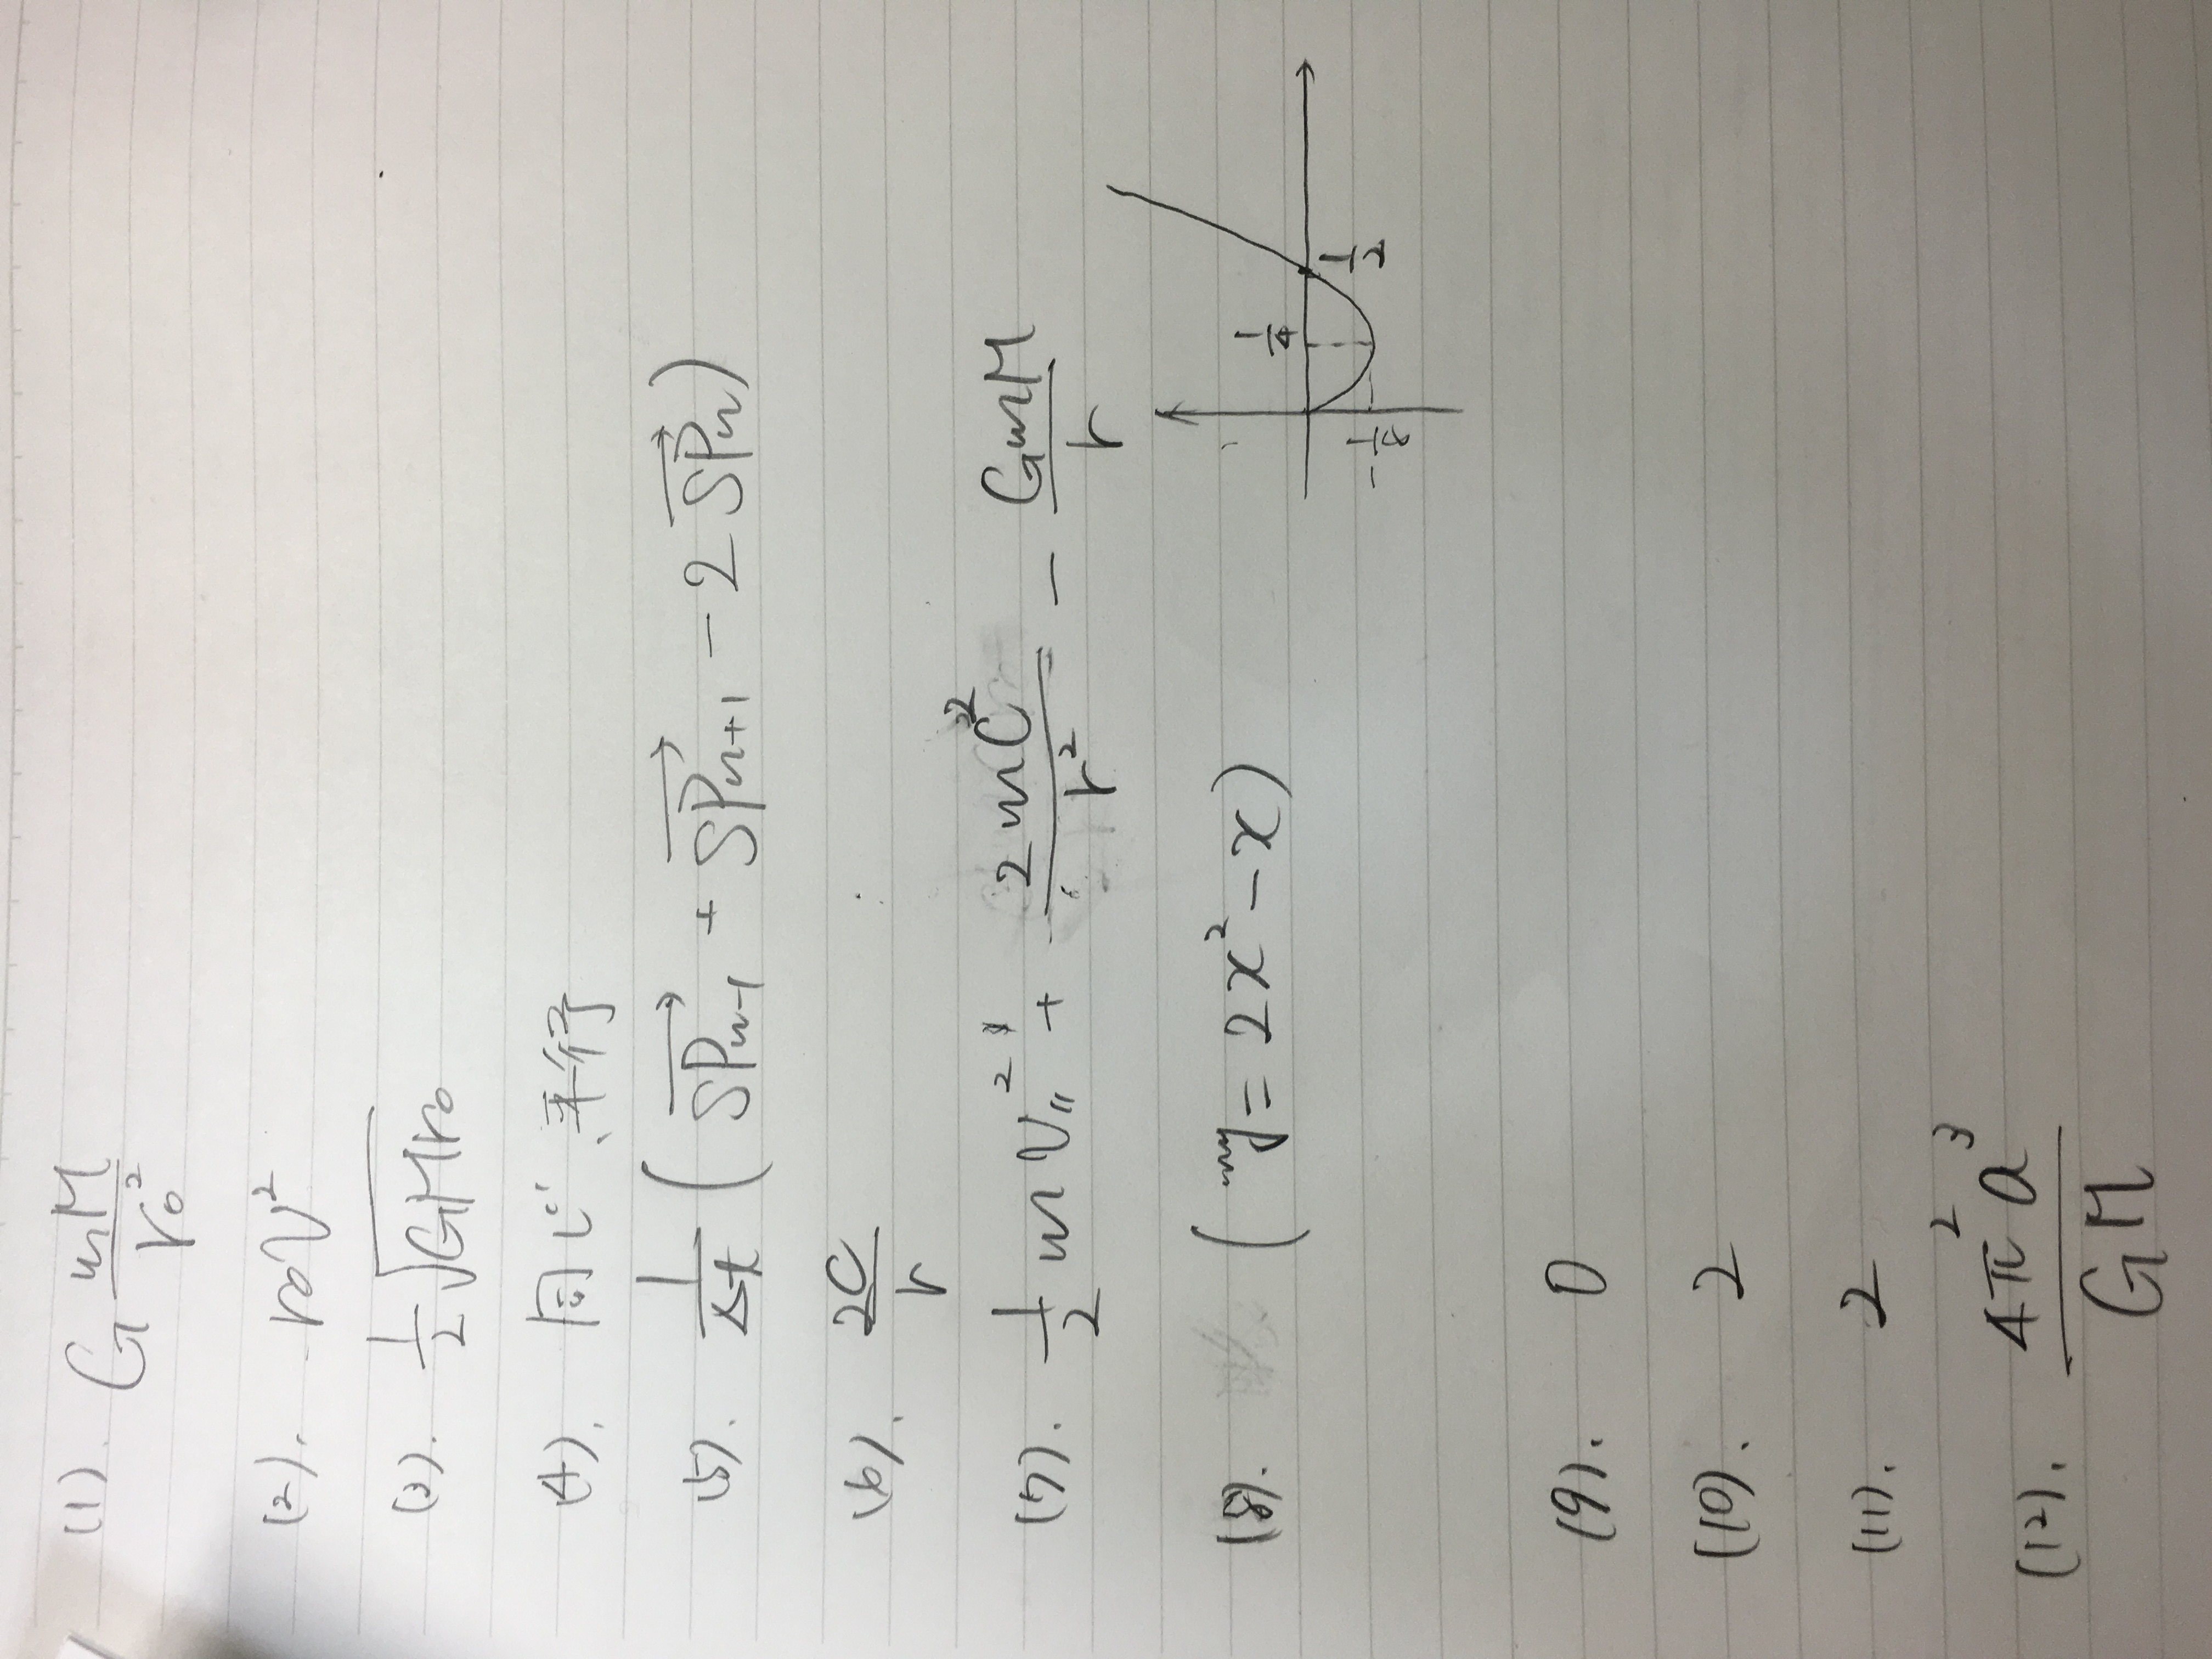 (1). G mM/r₀²
(2). r₀v²
(3). 1/2 √GMr₀
(4). 同じ、平行
(5). 1/Δt (SPₙ₋₁ + SPₙ₊₁ - 2SPₙ)
(6). 2C/r
(7). 1/2 m v〃² + 2mC²/r² - GmM/r
(8). (y = 2x² - x) 1/4 1/2 -1/8
(9). 0
(10). 2
(11). 2
(12). 4π²a³/GM